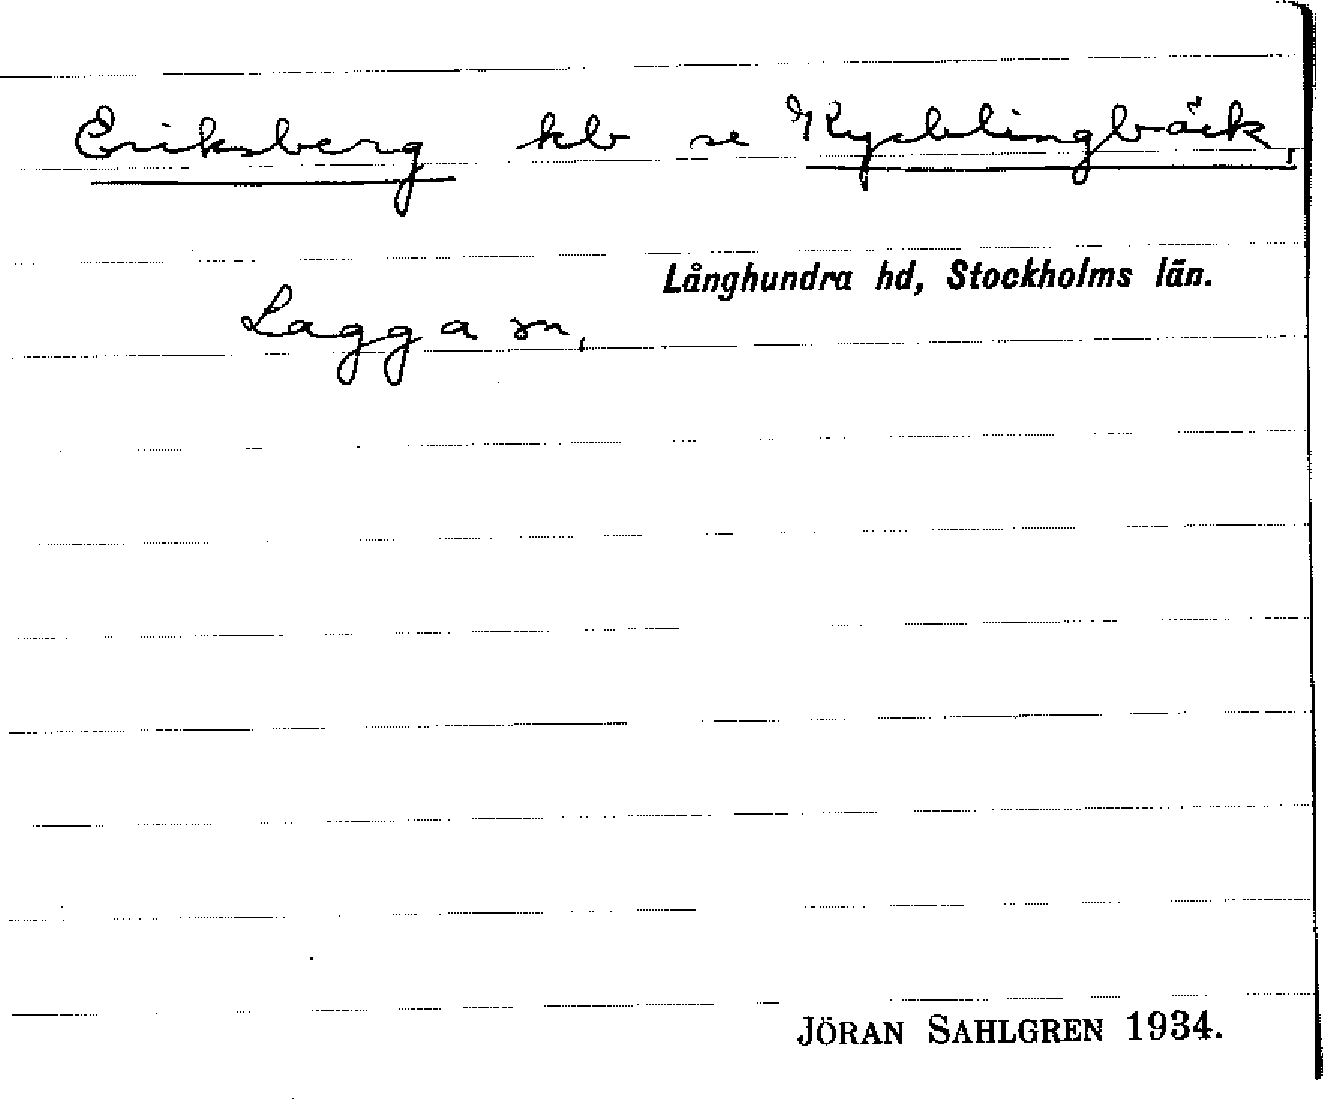 Eriksberg kb se Kycklingbäck,
Långhundra hd, Stockholms län.
Lagga sn,
JÖRAN SAHLGREN 1934.